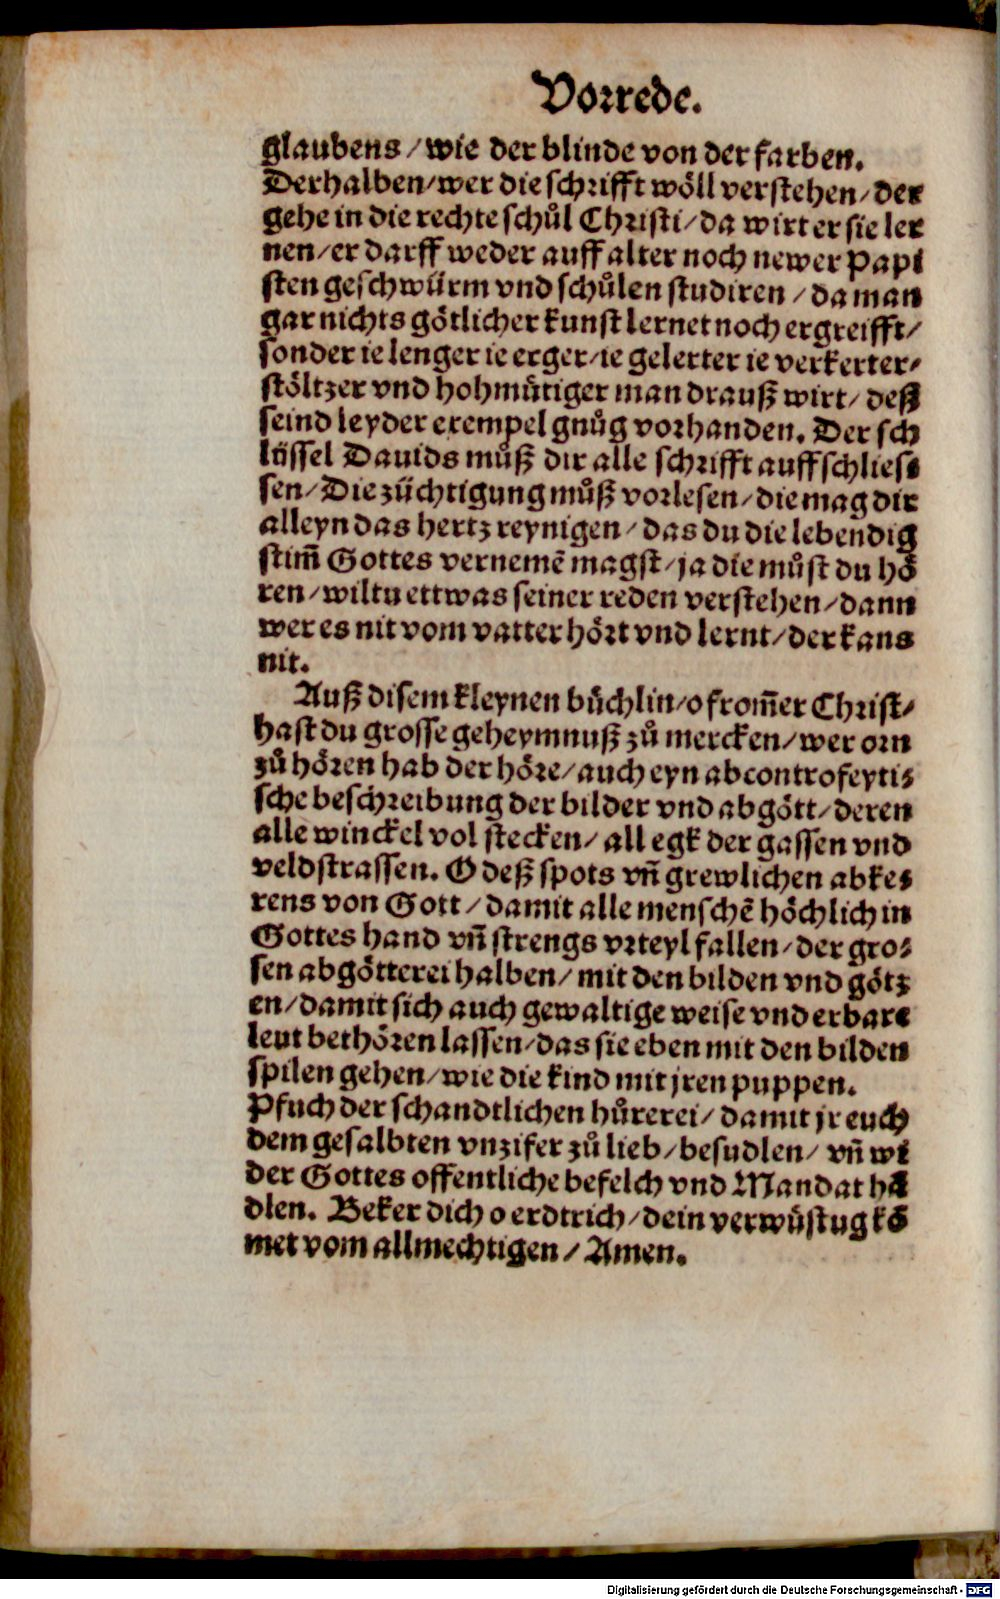 Vorrede.
glaubens / wie der blinde von der farben.
Derhalben / wer die schrifft wöll verstehen / der
gehe in die rechte schůl Christi / da wirt er sie ler
nen / er darff weder auff alter noch newer Papi
sten geschwürm vnd schůlen studiren / da man
gar nichts götlicher kunst lernet noch ergreifft /
sonder ie lenger ie erger / ie gelerter ie verkerter /
stöltzer vnd hohmütiger man drauß wirt / deß
seind leyder exempel gnůg vorhanden. Der sch
lüssel Dauids můß dir alle schrifft auffschlies⸗
sen / Die züchtigung můß vorlesen / die mag dir
alleyn das hertz reynigen / das du die lebendig
stim̃ Gottes vernemẽ magst / ja die můst du hö
ren / wiltu ettwas seiner reden verstehen / dann
wer es nit vom vatter hört vnd lernt / der kans
nit.
Auß disem kleynen büchlin / o from̃er Christ /
hast du grosse geheymnuß zů mercken / wer orn
zů hören hab der höre / auch eyn abcontrofeyti⸗
sche beschreibung der bilder vnd abgött / deren
alle winckel vol stecken / all egk der gassen vnd
veldstrassen. O deß spots vñ grewlichen abke⸗
rens von Gott / damit alle menschẽ höchlich in
Gottes hand vñ strengs vrteyl fallen / der gro⸗
sen abgötterei halben / mit den bilden vnd götz
en / damit sich auch gewaltige weise vnd erbare
leut bethören lassen / das sie eben mit den bilden
spilen gehen / wie die kind mit jren puppen.
Pfuch der schandtlichen hůrerei / damit jr euch
dem gesalbten vnzifer zů lieb / besudlen / vñ wi
der Gottes offentliche befelch vnd Mandat hã
dlen. Beker dich o erdtrich / dein verwüstug kõ
met vom allmechtigen / Amen.
Digitalisierung gefördert durch die Deutsche Forschungsgemeinschaft - DFG